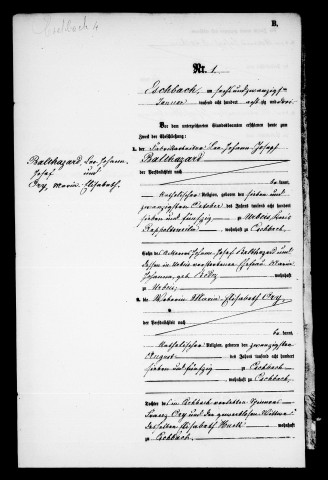 Eschbach 4
B.
Nr. 1.
Eschbach, am sechsundzwanzigsten
Januar tausend acht hundert acht und
Vor dem unterzeichneten Standesbeamten erschienen heute zum
Zweck der Eheschließung:
1. der Fabrikarbeiter Leo Johann Joseph
Balthazard
der Persönlichkeit nach
be kannt,
katholischer Religion, geboren den sieben und
zwanzigsten Oktober des Jahres tausend acht hundert
sieben und fünfzig zu Urbeis, Kreis
Rappoltsweiler, wohnhaft zu Eschbach,
Balthazard, Leo Johann
Josef und
Ory, Maria Elisabeth.
Sohn des Johann Josef Balthazard und
dessen in Urbeis verstorbenen Ehefrau Maria
Johanna, geb. wohnhaft
zu Urbeis;
2. die Weberin Maria Elisabeth Ory,
der Persönlichkeit nach
be kannt,
katholischer Religion, geboren den zwanzigsten
August des Jahres tausend acht hundert
sieben und fünfzig zu Eschbach
, wohnhaft zu Eschbach,
Tochter des in Eschbach verlebten
Franz Ory und der gewerblosen Wittwe
desselben Elisabeth wohnhaft
zu Eschbach.